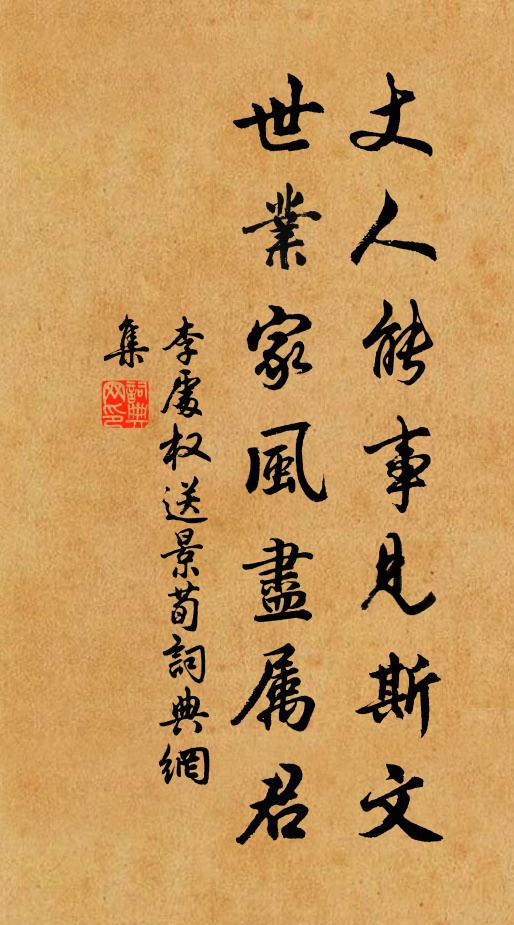 丈人能事見斯文
世業家風盡属君
李處权送景荀詞典網
集
詞典网印